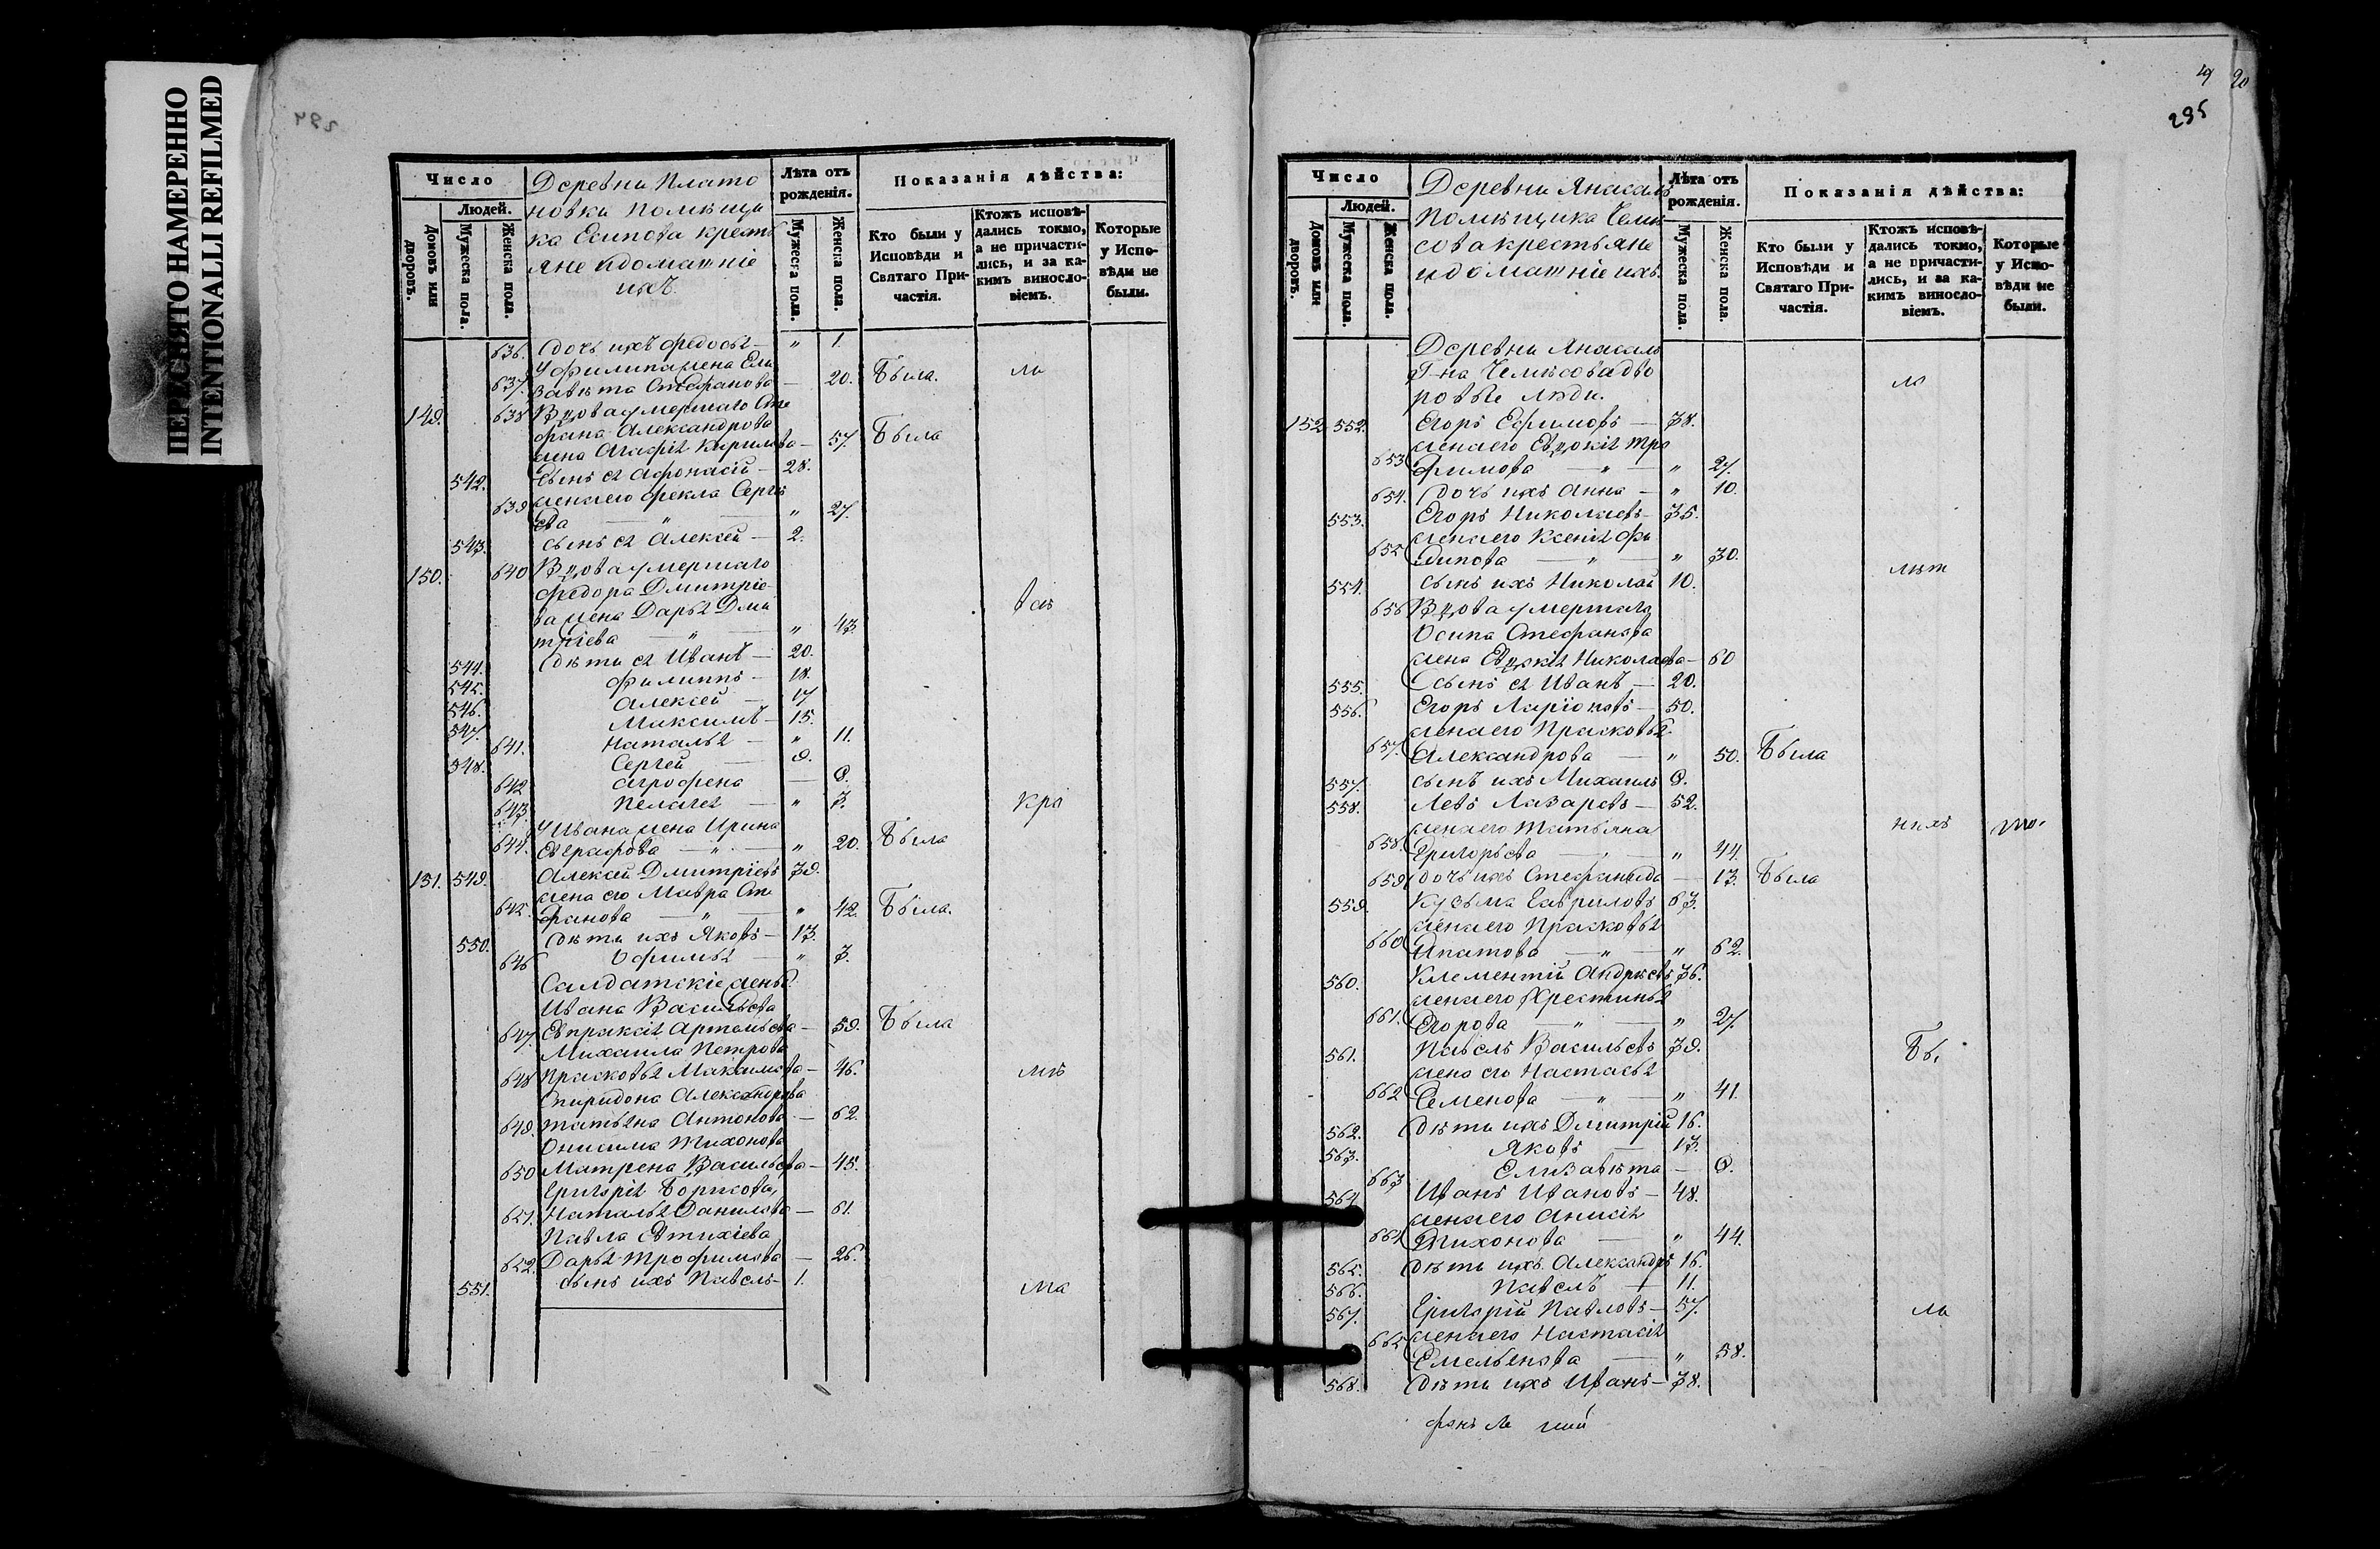 ПЕРЕСНЯТО НАМЕРЕННО
INTENTIONALLI REFILMED
294
Число
Людей.
Домовъ или дворовъ.
Мужеска пола.
Женска пола.
Деревни Плато
новки помѣщи
ка Есипова крестья
яне и домашніе
ихъ.
Лѣта отъ рожденія.
Мужеска пола.
Женска пола.
Показанія дѣйства:
Кто были у Исповѣди и Святаго Причастія.
Ктожъ исповѣдались токмо, а не причастились, и за какимъ винословіемъ.
Которые у Исповѣди не были.
636. дочь ихъ Федосья — „ 1.
У Филипа жена Ели
637. завѣта Стефанова — 20. Была. ли
149. 638 Вдова умершаго Сте
фана Александрова
жена Агафія Кирилова — 57. Была
542. Сынъ ея Афонасій — 28.
639 жена его Фекла Сергѣ
ева — „ — „ 27.
543. сынъ ея Алексей — 2.
150. 640 Вдова умершаго
Федора Дмитріе
ва жена Дарья Дми
тріева — „ — „ 43.
544. дѣти ея Иванъ — 20.
545. Филиппъ — 18.
546. Алексей — 17
547. Максимъ — 15.
641. Наталья — „ 11.
548. Сергей — 9.
642 Агрофена — 8.
643. Пелагея — „ 3. кре
У Ивана жена Ирина
644. Евграфова — „ — „ 20. Была
151. 549. Алексей Дмитріевъ 39.
жена его Мавра Сте
645. фанова — „ — „ 42. Была.
550. дѣти ихъ Яковъ — 13.
646 Офимья — „ 3.
Салдатскіе жены
Ивана Васильева
647. Евпраксія Артемьева — 59. Была
Михаила Петрова
648 Прасковья Максимова — 46.
Спиридона Александрова
649. Татьяна Антонова — 62.
Онисима Тихонова
650 Матрена Васильева — 45.
Григорія Борисова,
651. Наталья Данилова — 61.
Павла Евтихіева
652. Дарья Трофимова — 26.
551. сынъ ихъ Павелъ — 1. ма
19 20
295
Число
Людей.
Домовъ или дворовъ.
Мужеска пола.
Женска пола.
Помѣщика Челю
сова крестьяне
и домашніе ихъ.
Лѣта отъ рожденія.
Мужеска пола.
Женска пола.
Показанія дѣйства:
Кто были у Исповѣди и Святаго Причастія.
Ктожъ исповѣдались токмо, а не причастились, и за какимъ винословіемъ.
Которые у Исповѣди не были.
ровые люди.
152 552. Егоръ Ефимовъ — 38.
жена его Евдокія Тро
653 фимова — „ — „ 27.
654. дочь ихъ Анна — „ 10.
553. Егоръ Николаевъ — 35.
жена его Ксенія Фи
655 липова — „ — „ 30.
554. сынъ ихъ Николай 10. лѣт
656 Вдова умершаго
Осипа Стефанова
жена Евдокія Николаева — 60
555. сынъ ея Иванъ — 20.
556. Егоръ Ларіоновъ — 50.
жена его Прасковья
657. Александрова — „ 50. Была
557. сынъ ихъ Михаилъ 8.
558. Левъ Лазаревъ — 52.
жена его Татьяна
658. Григорьева — „ 44.
659 дочь ихъ Стефанида — 13. Была
559. Кузьма Гавриловъ 63.
жена его Прасковья
660 Ипатова — „ — „ 62.
560. Климентій Андреевъ 36.
жена его Хрестинья
661. Егорова — „ — „ 27.
561. Павелъ Васильевъ 39. Бы.
жена его Настасья
662 Семенова — „ — „ 41.
562. дѣти ихъ Дмитрій 16.
563. Яковъ — 13.
663 Елизавѣта — 8.
564 Иванъ Ивановъ — 48.
жена его Анисія
664 Тихонова — „ 44.
565. дѣти ихъ Александръ 16.
566. Павелъ — 11.
567. Григорій Павловъ — 57. ли
665 жена его Настасія
Емельенова — „ 58.
568. дѣти ихъ Иванъ — 38.